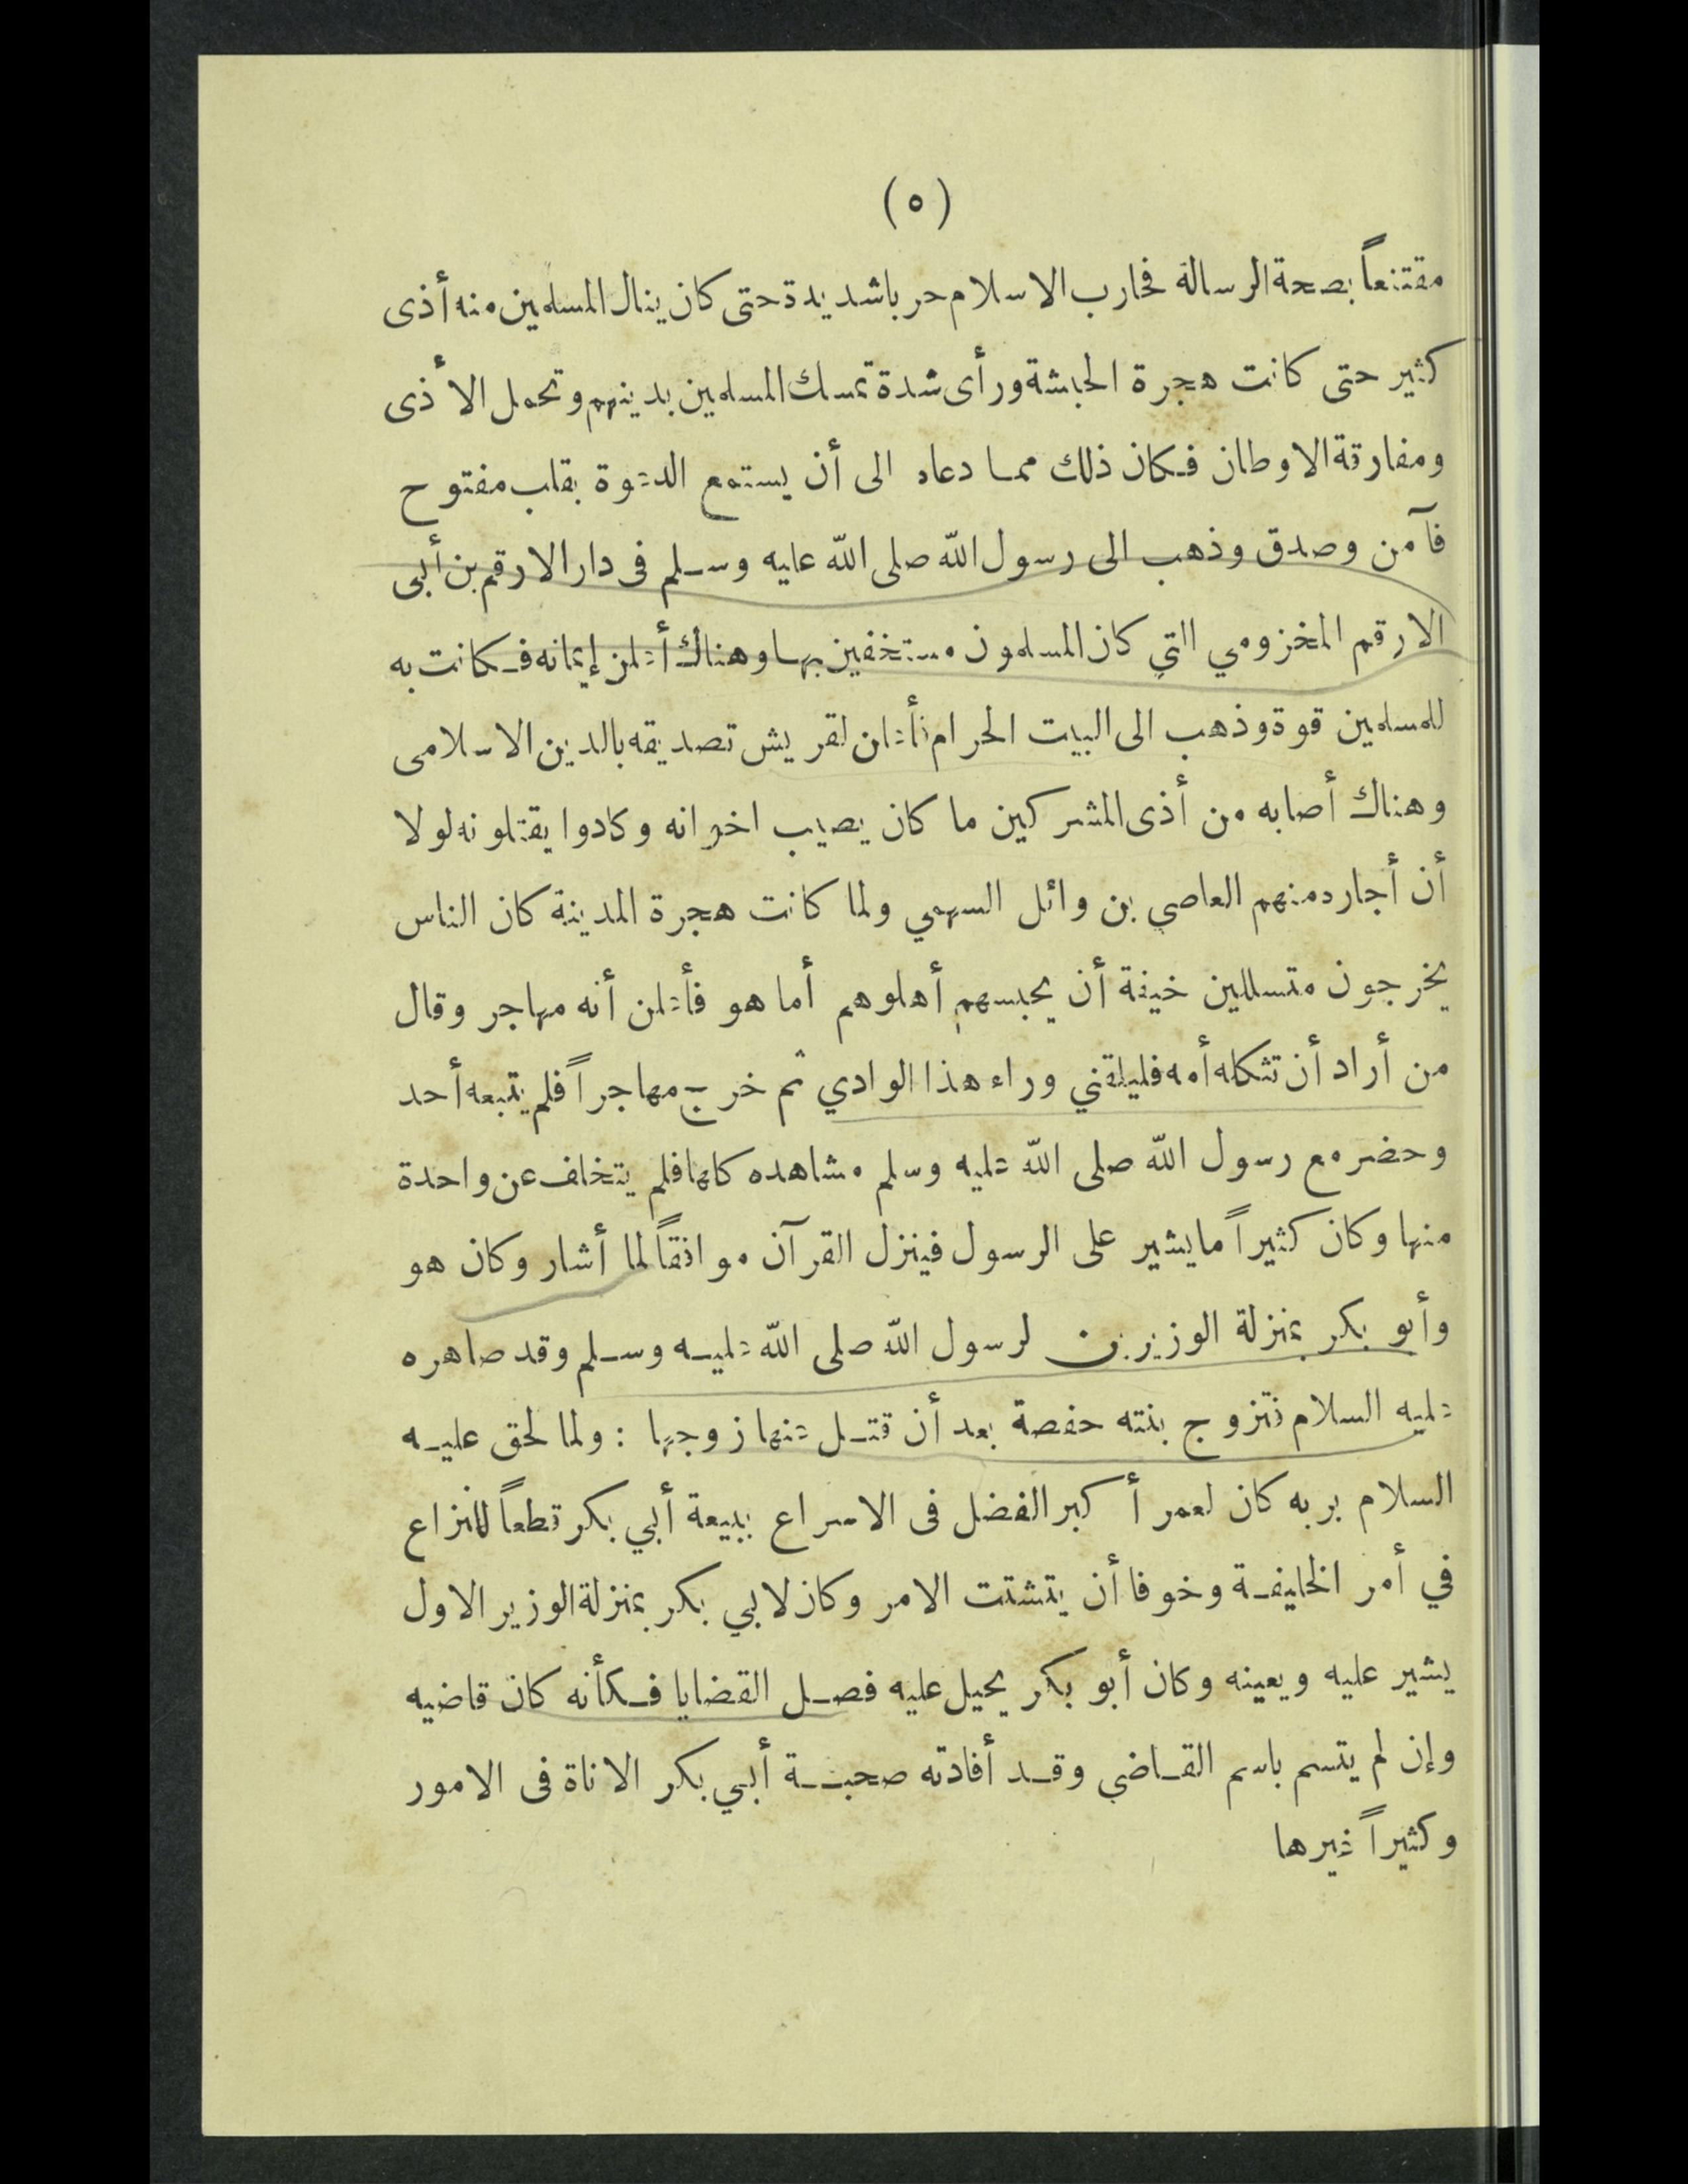 (٥)
مقتنعاً بصحة الرسالة فحارب الاسلام حربا شديدة حتى كان ينال المسلمين منه أذى
كثير حتى كانت هجرة الحبشة ورأى شدة تمسك المسلمين بدينهم وتحمل الأذى
ومفارقة الاوطان فكان ذلك مما دعاه الى أن يستمع الدعوة بقلب مفتوح
فآمن وصدق وذهب الى رسول الله صلى الله عليه وسلم فى دار الارقم بن أبى
الارقم المخزومي التي كان المسلمون مستخفين بها وهناك أعلن إيمانه فكانت به
للمسلمين قوة وذهب الى البيت الحرام فأعلن لقريش تصديقه بالدين الاسلامى
وهناك أصابه من أذى المشركين ما كان يصيب اخوانه وكادوا يقتلونه لولا
أن أجاره منهم العاصي بن وائل السهمي ولما كانت هجرة المدينة كان الناس
يخرجون متسللين خيفة أن يحبسهم أهلوهم أما هو فأعلن أنه مهاجر وقال
من أراد أن تثكله أمه فليلقني وراء هذا الوادي ثم خرج مهاجراً فلم يتبعه أحد
وحضر مع رسول الله صلى الله عليه وسلم مشاهده كلها فلم يتخلف عن واحدة
منها وكان كثيراً ما يشير على الرسول فينزل القرآن موافقاً لما أشار وكان هو
وأبو بكر بمنزلة الوزيرين لرسول الله صلى الله عليه وسلم وقد صاهره
عليه السلام فتزوج بنته حفصة بعد أن قتل عنها زوجها : ولما لحق عليه
السلام بربه كان لعمر أكبر الفضل فى الاسراع ببيعة أبي بكر قطعاً للنزاع
في أمر الخليفة وخوفا أن يتشتت الامر وكان لابي بكر بمنزلة الوزير الاول
يشير عليه ويعينه وكان أبو بكر يحيل عليه فصل القضايا فكأنه كان قاضيه
وإن لم يتسم باسم القاضي وقد أفادته صحبة أبي بكر الاناة فى الامور
وكثيراً غيرها